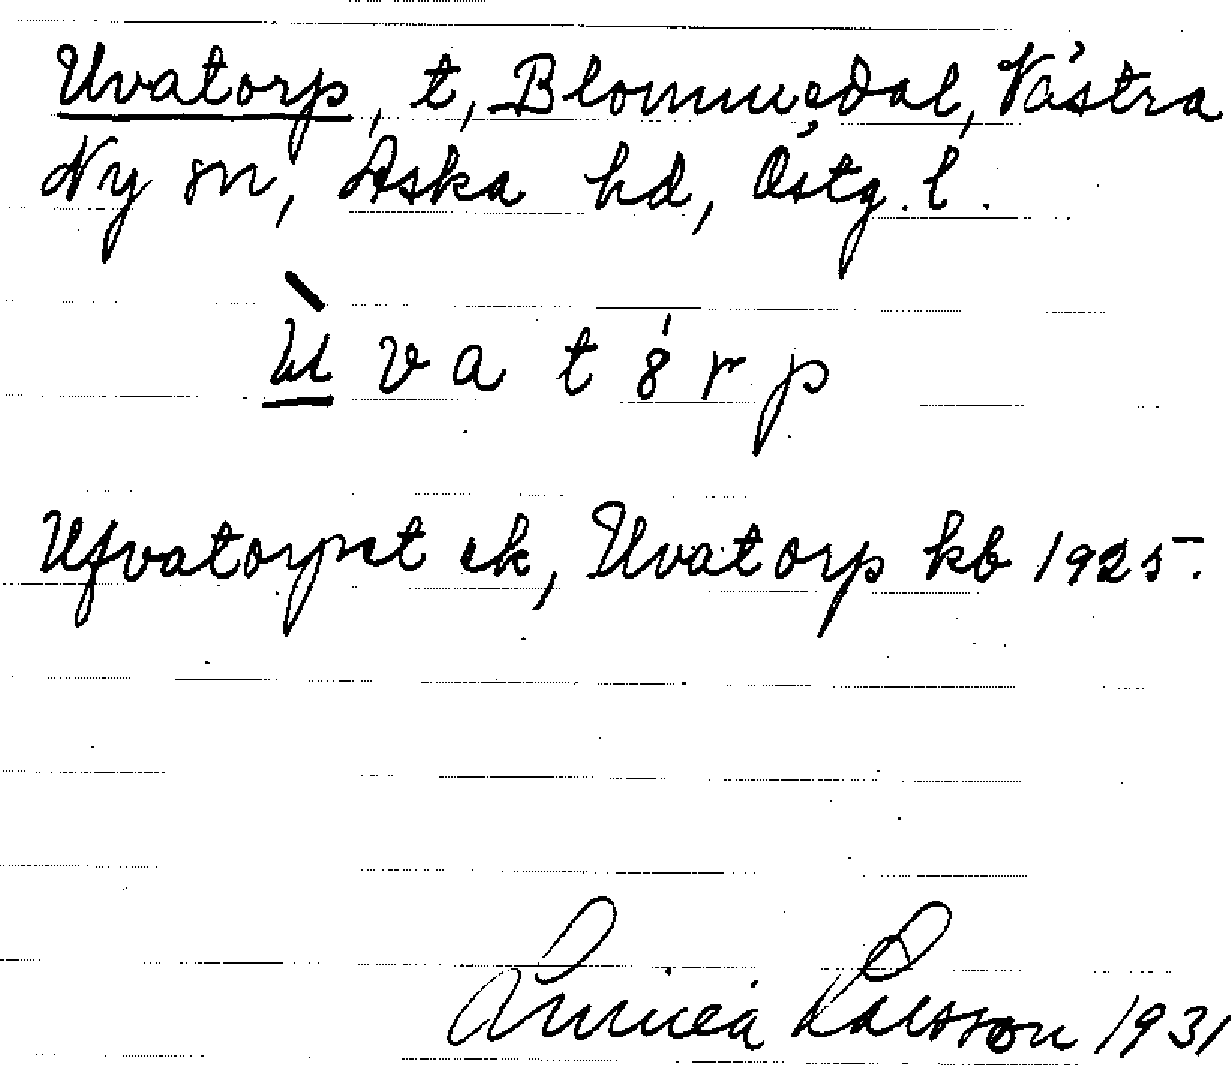 Uvatorp, t, Blommedal, Västra
Ny sn, Aska hd, Östg. l.
ù v a t ó r p
Ufvatorpet ek, Uvatorp kb 1925.
Linnea Larsson 1931